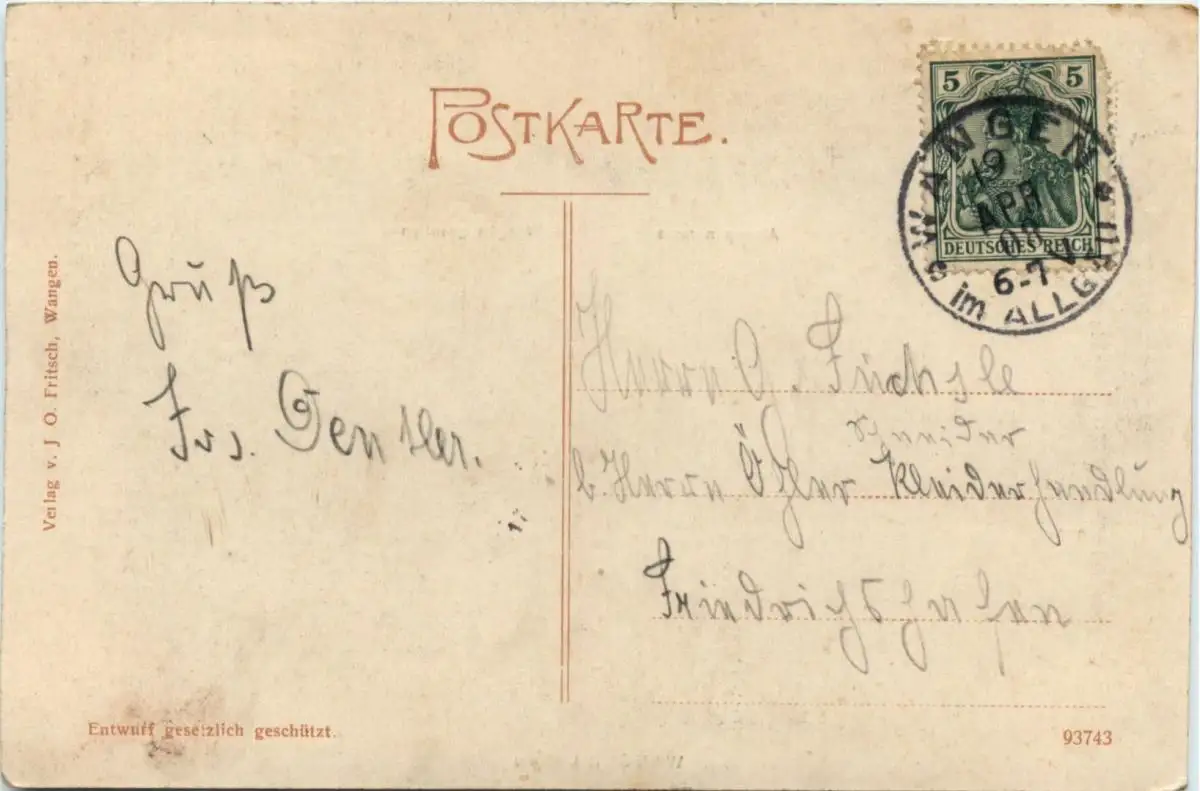 POSTKARTE.
5 5
DEUTSCHES REICH
WANGEN
19
APR
08
6-7 V
im ALLGÄU
Verlag v. J O. Fritsch, Wangen.
Gruß
Frs.
Herrn G. Füchsle
Schneider
b. Herrn Kleiderhandlung
Friedrichshafen
Entwurf gesetzlich geschützt.
93743